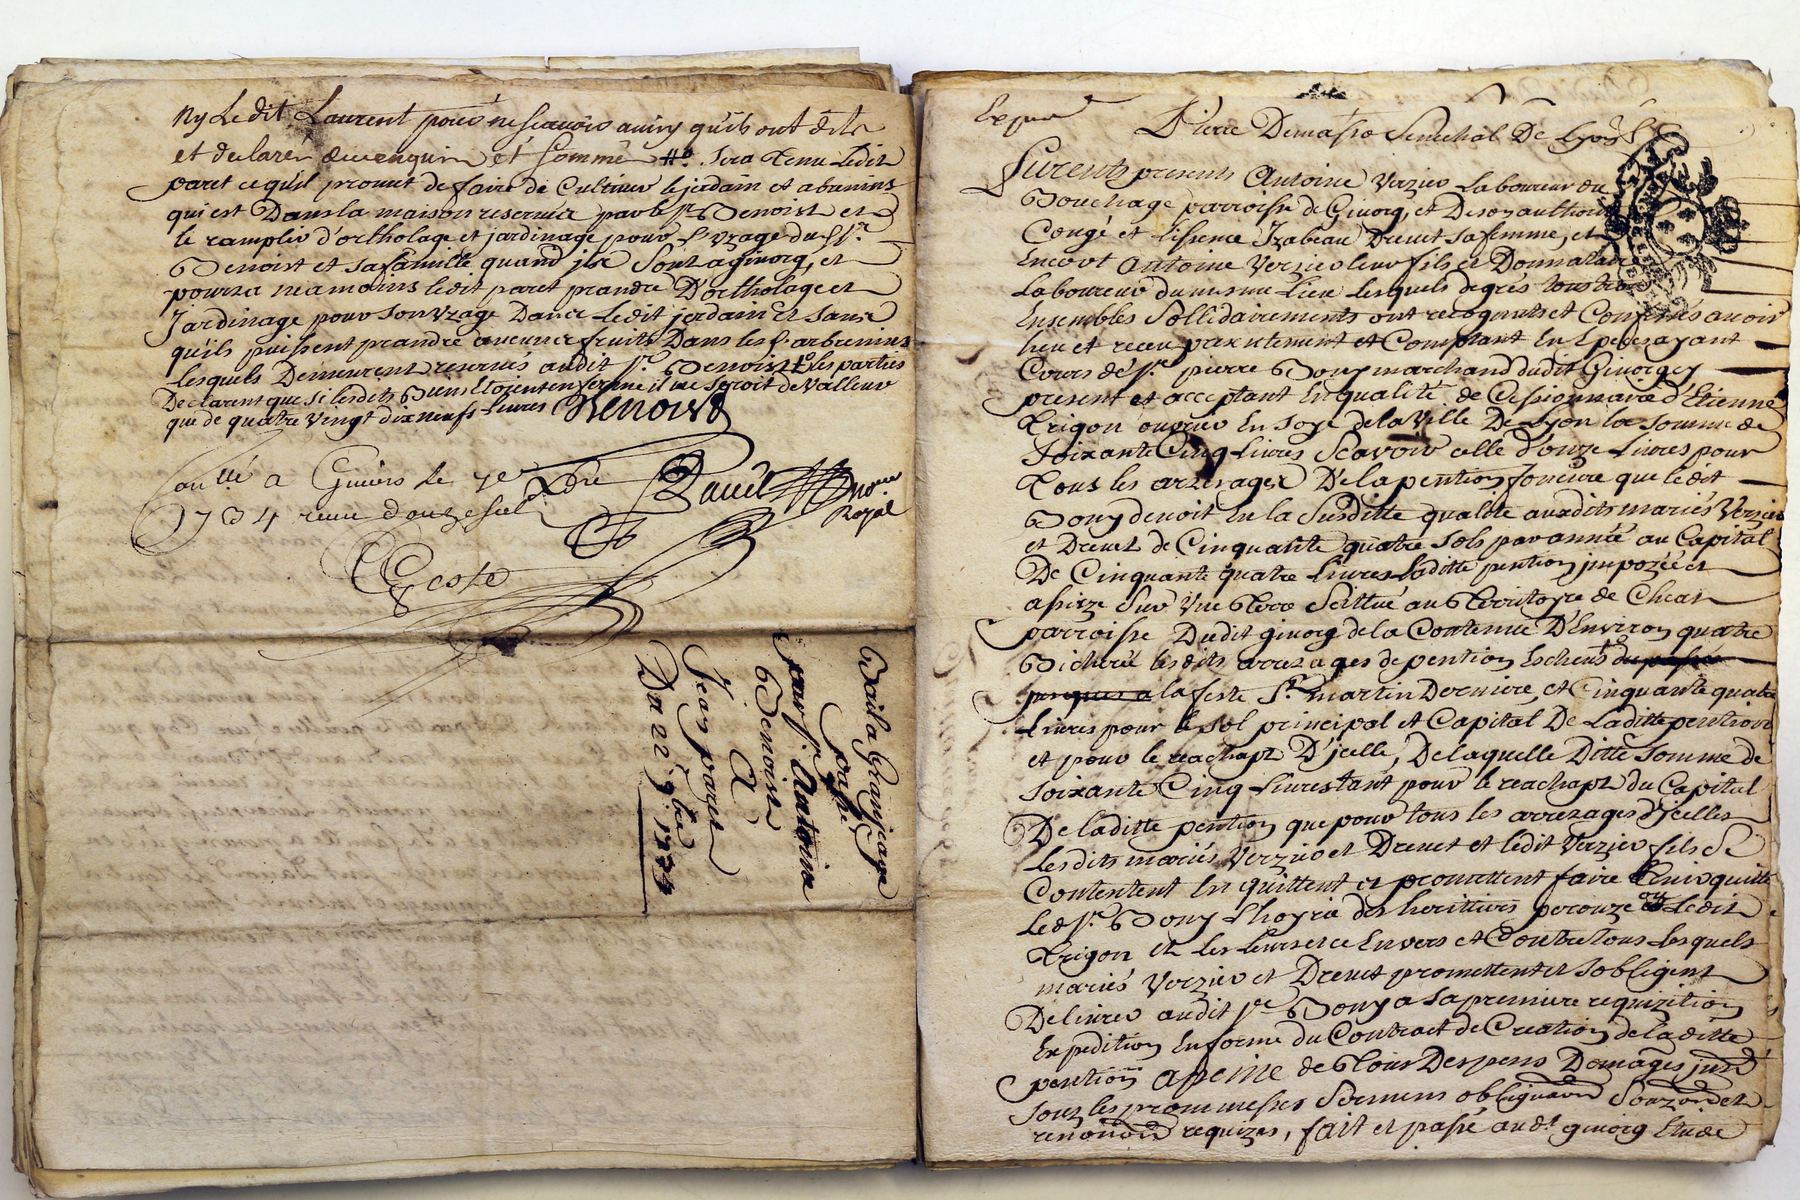 Ny Ledit Laurent ne scavoir ainsy quils ont dit
et declarer de ce enquis et sommé. sera tenu Ledit
paret ce quil promet de faire de Cultiver le jardain et
qui est Dans la maison reservée par le Sr Benoist et
le ramplir d'ortholage et jardinage pour L'uzage du Sr
Benoist et sa famille quand jls sont a givorg, et
pourra neamoins ledit paret prandre D'ortholage et
Jardinage pour son uzage Dans Ledit jardain Et sans
qu'ils puissent prandre aucuns fruits Dans les
lesquels Demeurent reservés audit Sr Benoist les parties
Declarent que si lesdits Biens Etoient en ferme il ne seroit de Valleur
que de quatre vingt dix neufs Livres Benoist
a Givors le
1734 receu douze sols
Royal
Bail a Granjeage
passé
par Sr. Antoine
Benoist
A
Jean paret
Du 22 9bre 1734
Pierre Demasso Senechal De Lyon
Furents presents Antoine Verzier Laboureur du
Bouchage parroisse de Givorg, et De son authorité
Congé et Lissence Izabeau Drevet sa femme, et
Encort Antoine Verzier leur fils et Donnataire
Laboureur du mesme Lieu Lesquels de gres tous trois
Ensembles Sollidairements ont recognuts et Confessés avoir
heu et receu prezentement et Comptant En Especes ayant
Cours de Sr pierre Bony marchand dudit Givorg ey
present et acceptant En qualité de Cessionnaire d'Etienne
Trigon ouvrier En soye de la ville De Lyon la somme de
Soixante Cinq Livres Scavoir celle d'onze Livres pour
Tous les arrerages De la pention fonciere que ledit
Bony devoit En la Susditte qualité auxdits mariés Verzier
et Drevet de Cinquante quatre sols par année au Capital
De Cinquante quatre Livres Laditte pention impozée et
assize Sur Une Terre Scittué au Territoyre de Chean
parroisse Dudit givorg de la Contenue D'Environ quatre
Bicherée lesdits arrerages de pention Escheus du passé
jusques a la feste St martin Derniere, et Cinquante quatre
Livres pour le sol principal et Capital De Laditte pention
et pour le reachapt D'jcelle, De laquelle Ditte Somme de
soixante Cinq Livres tant pour le reachapt du Capital
De laditte pention que pour tous les arrerages d'jcelles
Lesdits mariés Verzier et Drevet et ledit Verzier fils se
Contentent En quittent et promettent faire Tenir quitte
Le dt Sr Bony L'hoyrie des heritiers Ledit
Trigon et Les Leurs et ce Envers et Contre tous Lesquels
mariés Verzier et Drevet promettent et s'obligent
Delivrer audit Sr Bony a sa premiere requizition
Expedition En forme du Contract de Creation de laditte
pention a peine de Tous Despens Domages
sous les promesses serment
requizes, fait et passé audt givorg Etude